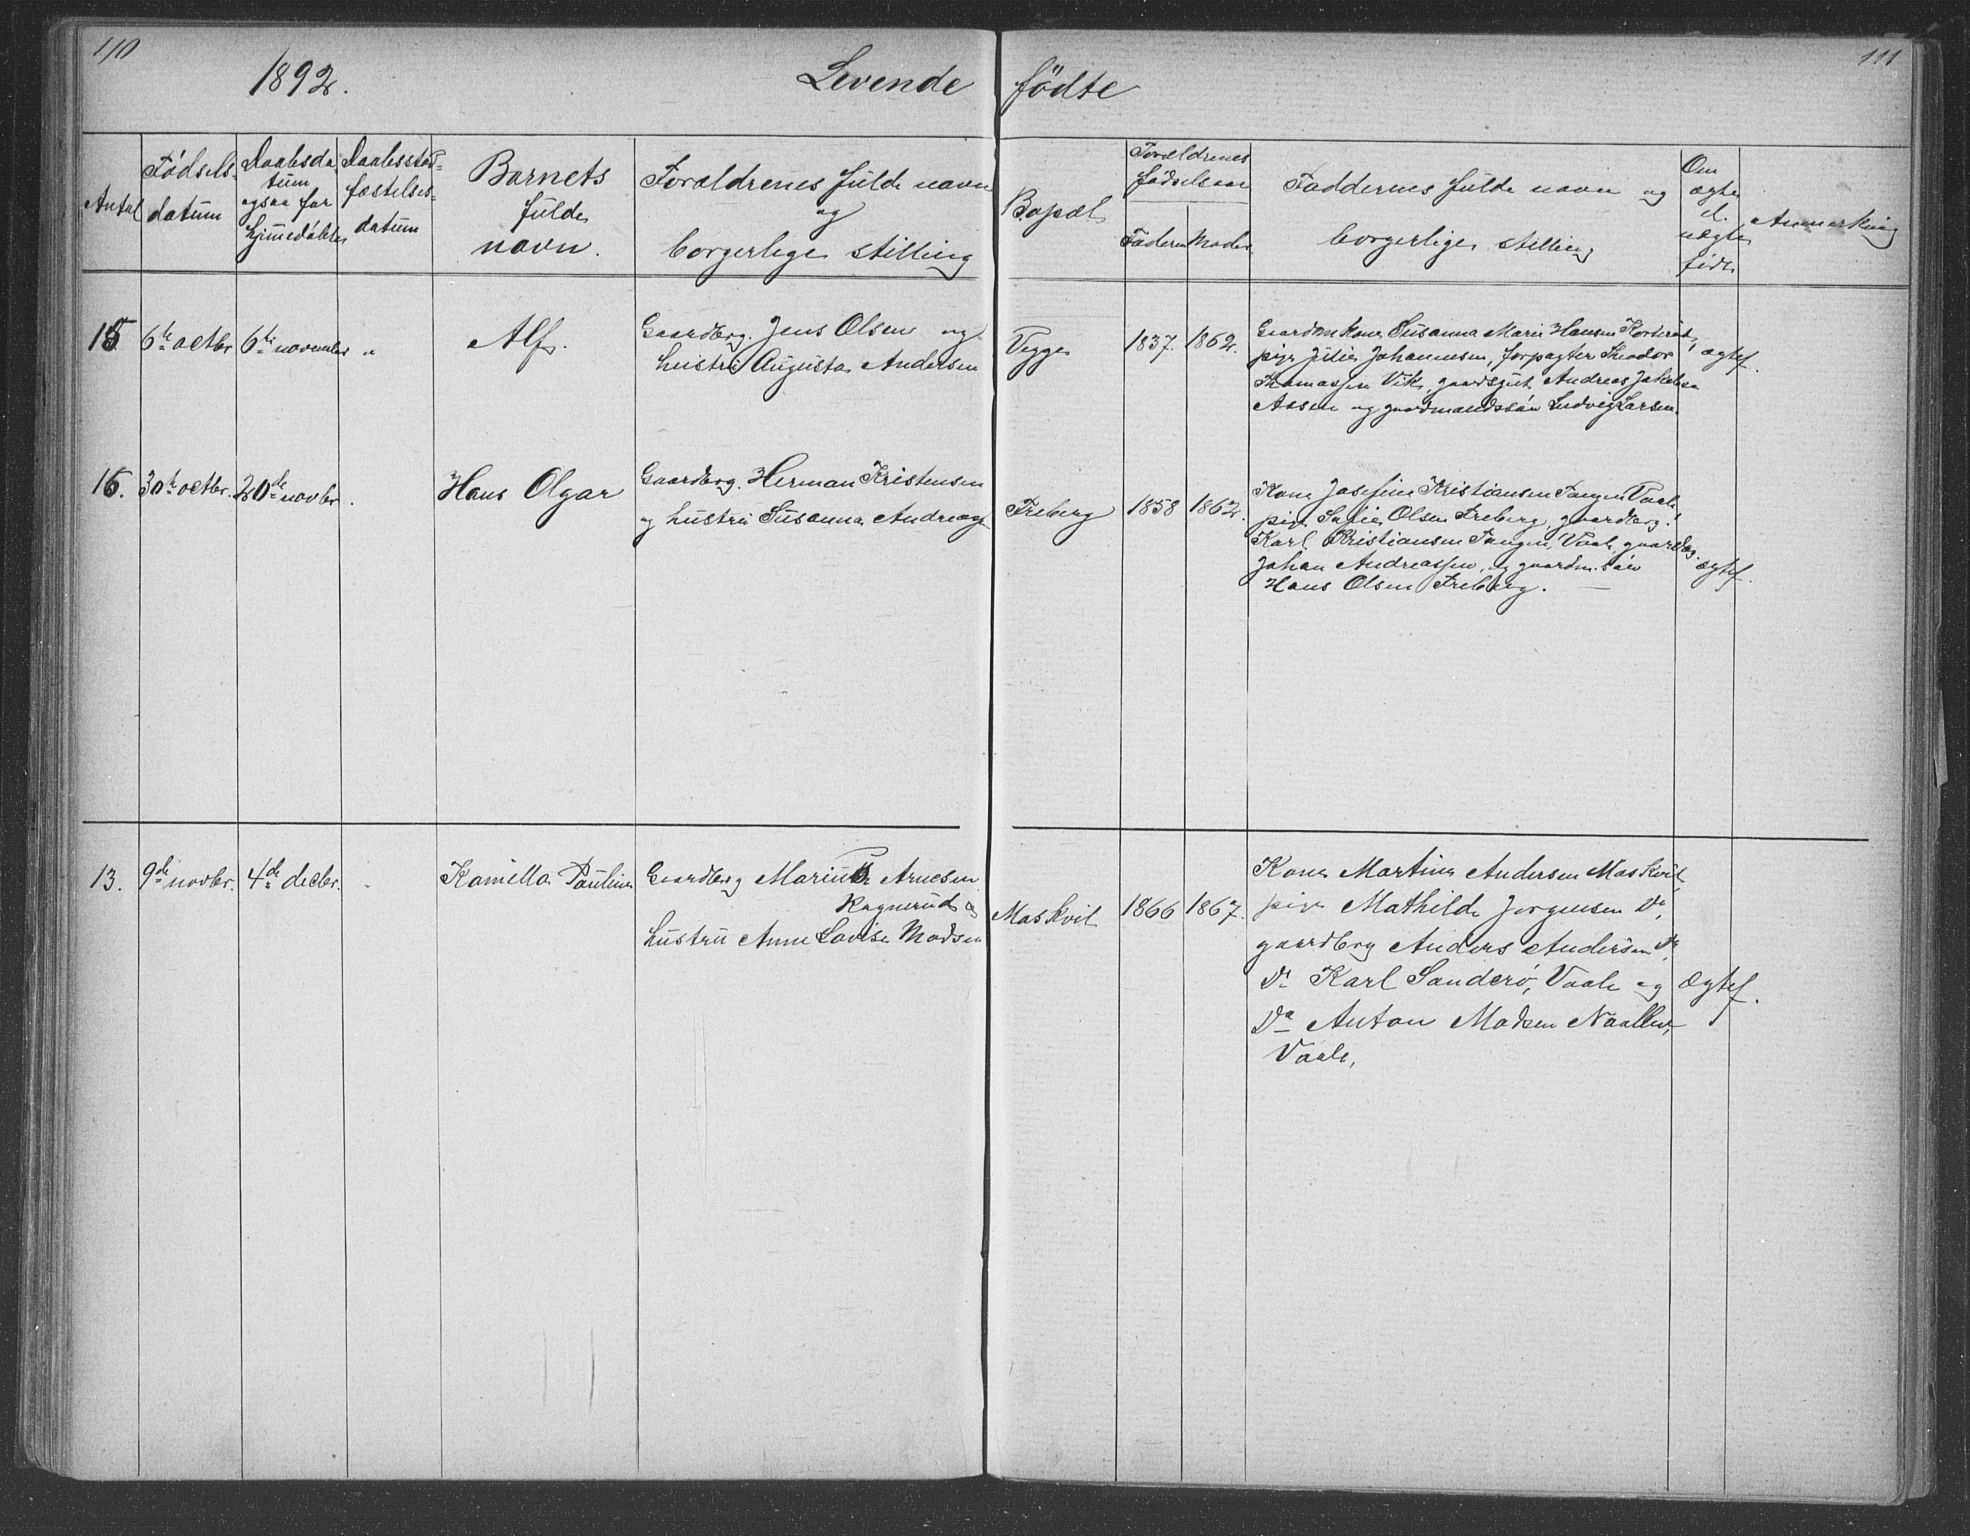 110
111
1892.
Levende fødte
Antal
Fødsels-
datum
Daabsda
tum
ogsaa for
hjimedøbte
Daabsstad-
fæstelses-
datum
Barnets
fulde
navn.
Forældrenes fulde navn
og
borgerlige stilling
Bopæl
Forældrenes
fødselsaar
Faderen
Moder
Faddernes fulde navn og
borgerlige stilling
Om
ægte
el.
uægte
født
Anmerkning
15
6te octbr
6te november
"
Alf.
Gaardbrg. Jens Olsen og
hustru Augusta Andersen
Vegge
1837.
1862.
Gaardm kone Susanna Marie Hansen
pige Julie Johannesen, forpagter Theodor
Thomassen Vik, gaardsgut Andreas Jakobsen
Aasen og gaardmandssøn Ludvig Larsen.
ægtef.
16.
30te octbr.
20de novbr.
Hans Olgar
Gaardbrg. Herman Kristensen
og hustru Susanna
Freberg
1858
1862.
Kone Josefine Kristiansen Tangen Vaale,
pige Sofie Olsen Freberg, gaardbrg.
Karl Kristiansen Tangen, Vaale, gaardbrg.
Johan Andreassen, og gaardm. søn
Hans Olsen Freberg.
ægtef.
13.
9de novbr.
4de decbr.
Kamilla Pauline
Gaardbrg Marius Arnesen
Ragnerud og
hustru Anne Lovise Madsen
Maskvil
1866
1867.
Kone Martine Andersen Maskvil,
pige Mathilde Jørgensen Do,
gaardbrg Anders Andersen Do,
Do Karl Sanderø, Vaale og
Do Anton Madsen
Vaale,
ægtef.